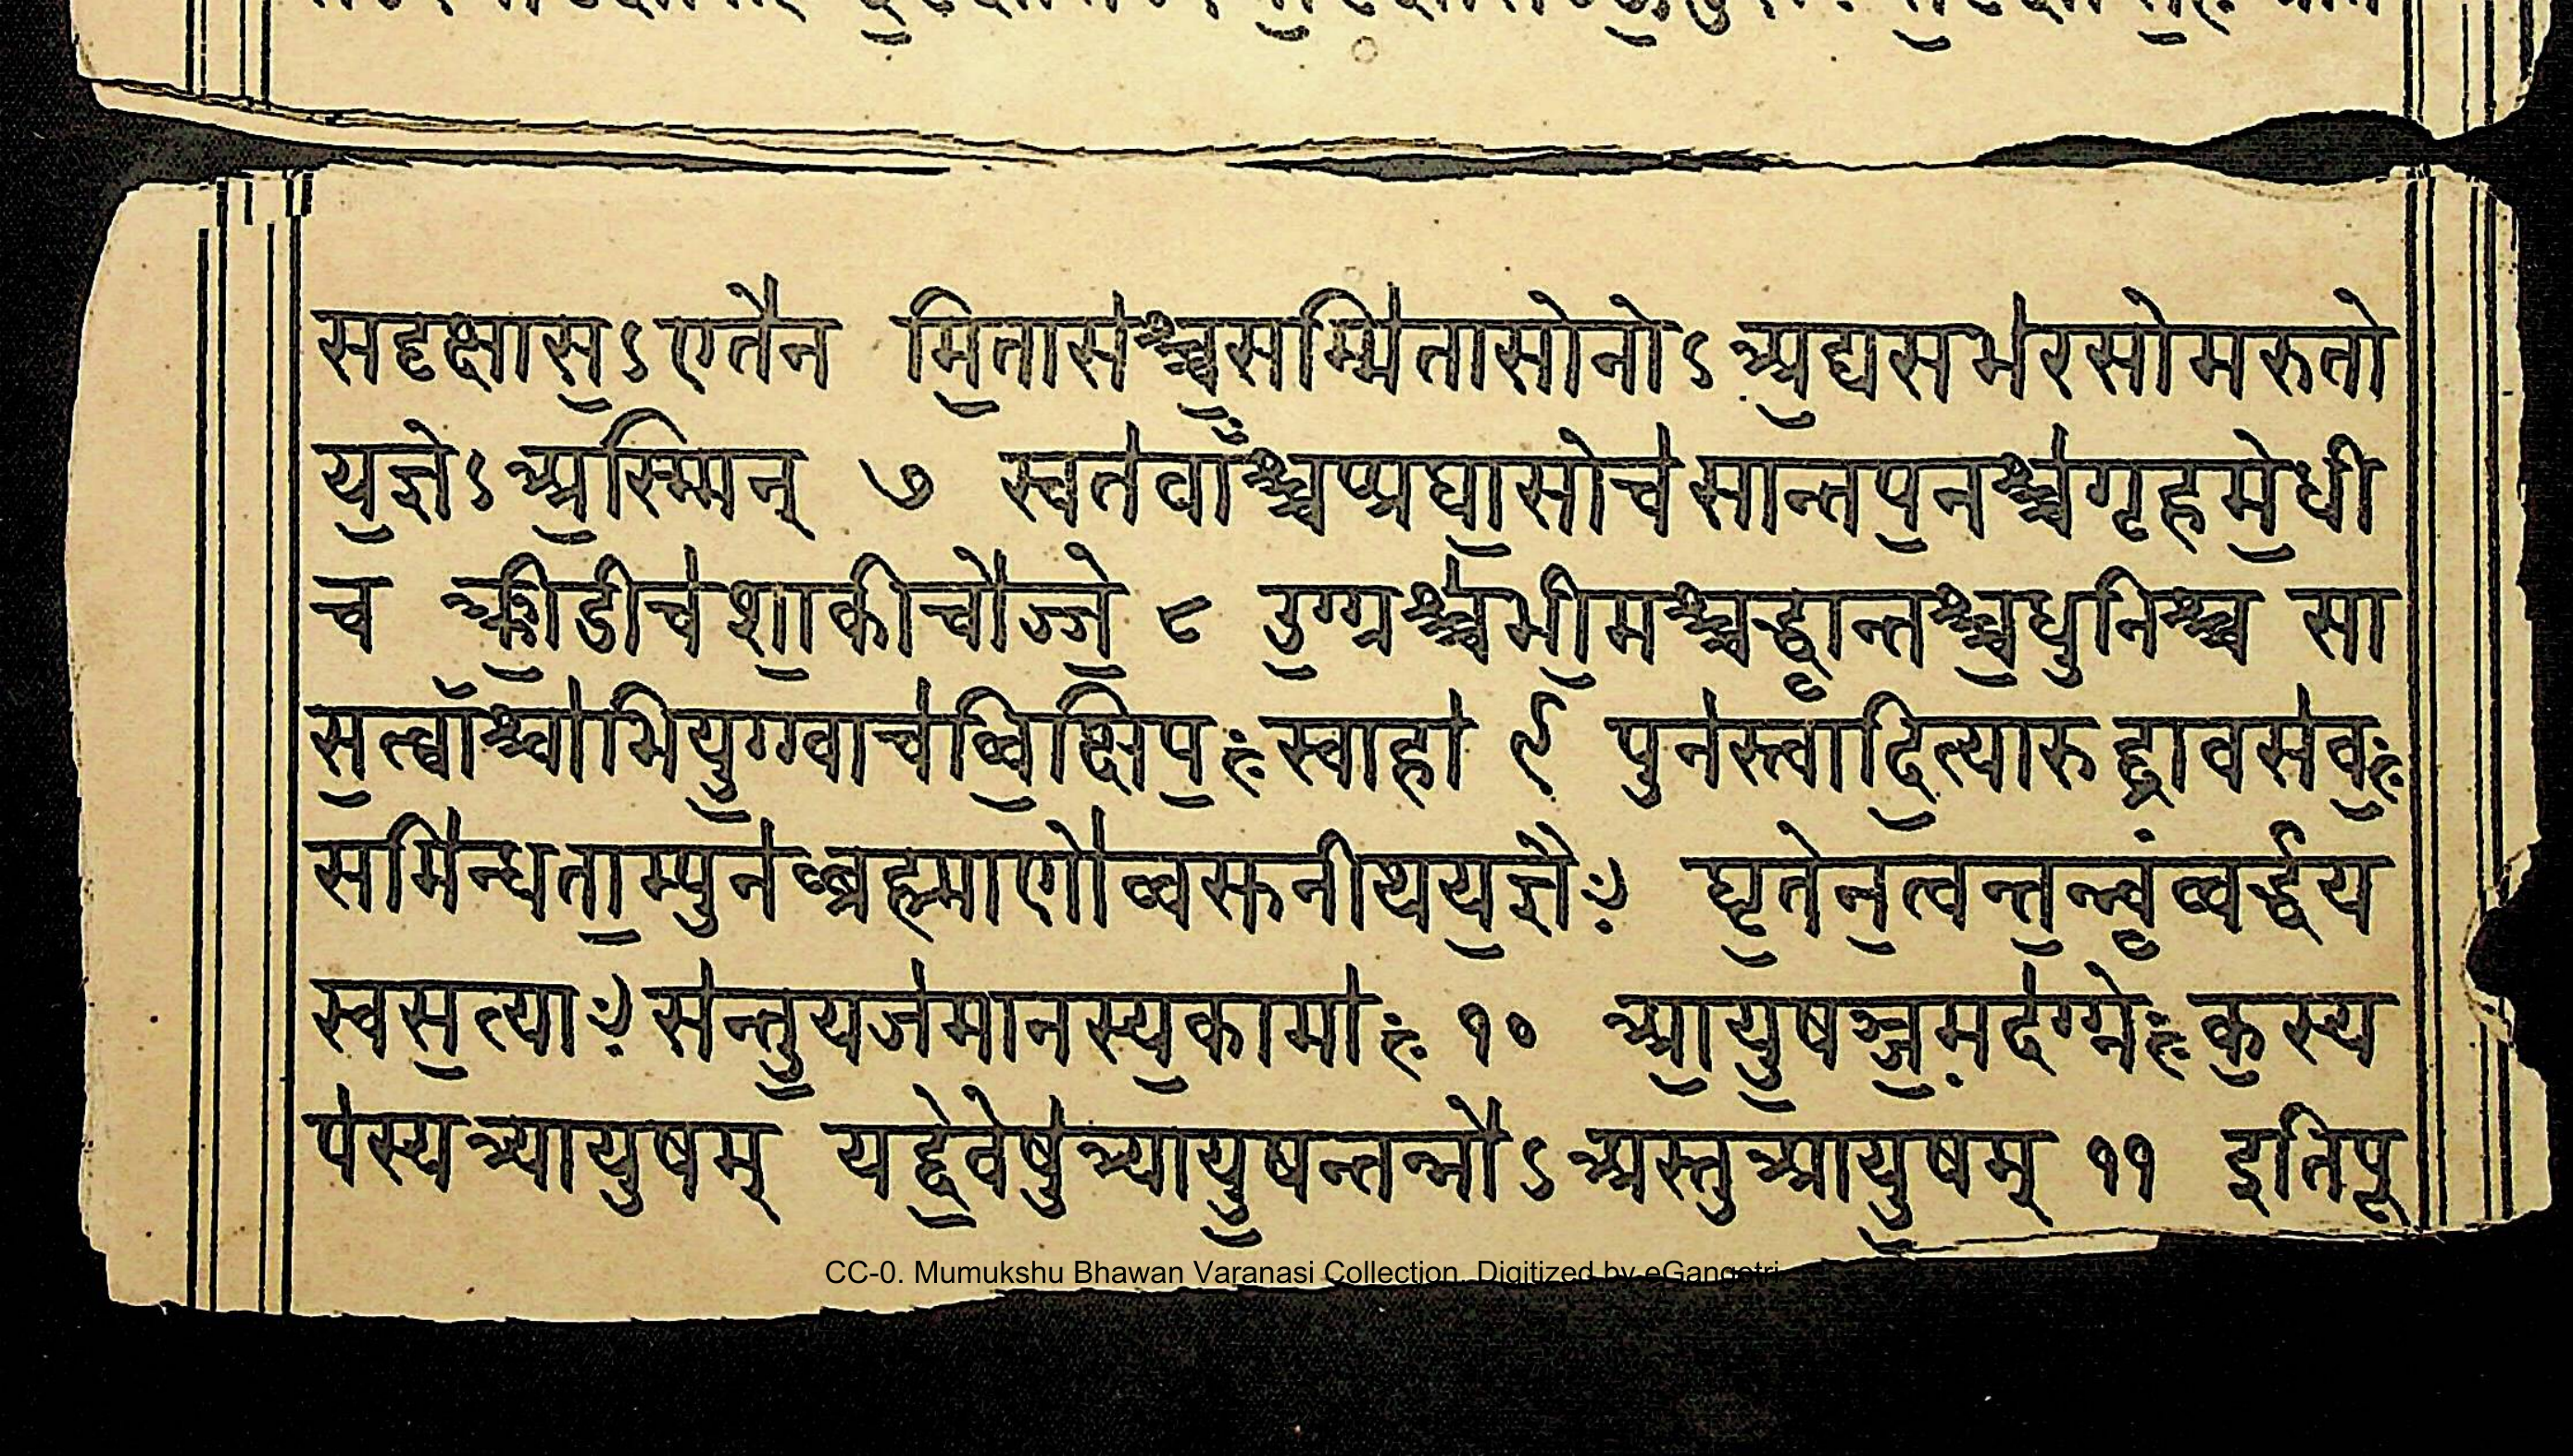 सदृक्षास॒ऽएतै॑न मि॒तास॑श्च्च॒सम्मि॑तासोनोऽअ॒द्यसभ॑रसोमरुतो
य॒ज्ञेऽअ॒स्म्मिन् ७ स्वत॑वाँश्च्चप्प्रघा॒सीच॑सान्तप॒नश्च्च॑गृहमे॒धी
च क्क्री॒डीच॑शा॒कीचो॑ज्जे॒ ८ उ॒ग्ग्रश्च्च॑भी॒मश्च्चद्ध्वा॒न्तश्च्च॒धुनिश्च्च सा
स॒त्वाँश्चा॑भियु॒ग्ग्वाच॑व्वि॒क्षिप॒ःस्वाहा॑ ९ पुन॑स्त्वादि॒त्यारुद्द्रावस॑व॒ः
समि॑न्धता॒म्पुन॑ब्ब्रह्माणो॑व्वसुनीथय॒ज्ञैः घृ॒तेन॒त्वन्त॒न्न्वं॒व्वर्द्धय
स्वस॒त्याःस॑न्तु॒यज॑मानस्य॒कामा॑ः १० त्र्या॒यु॒षञ्ज॒मद॑ग्ग्नेःक॒स्य
प॑स्यत्र्यायुषम् यद्दे॒वेषु॑त्र्यायु॒षन्तन्नो॑ऽअस्तुत्र्यायु॒षम् ११ इतिपू
CC-0. Mumukshu Bhawan Varanasi Collection. Digitized by eGangotri